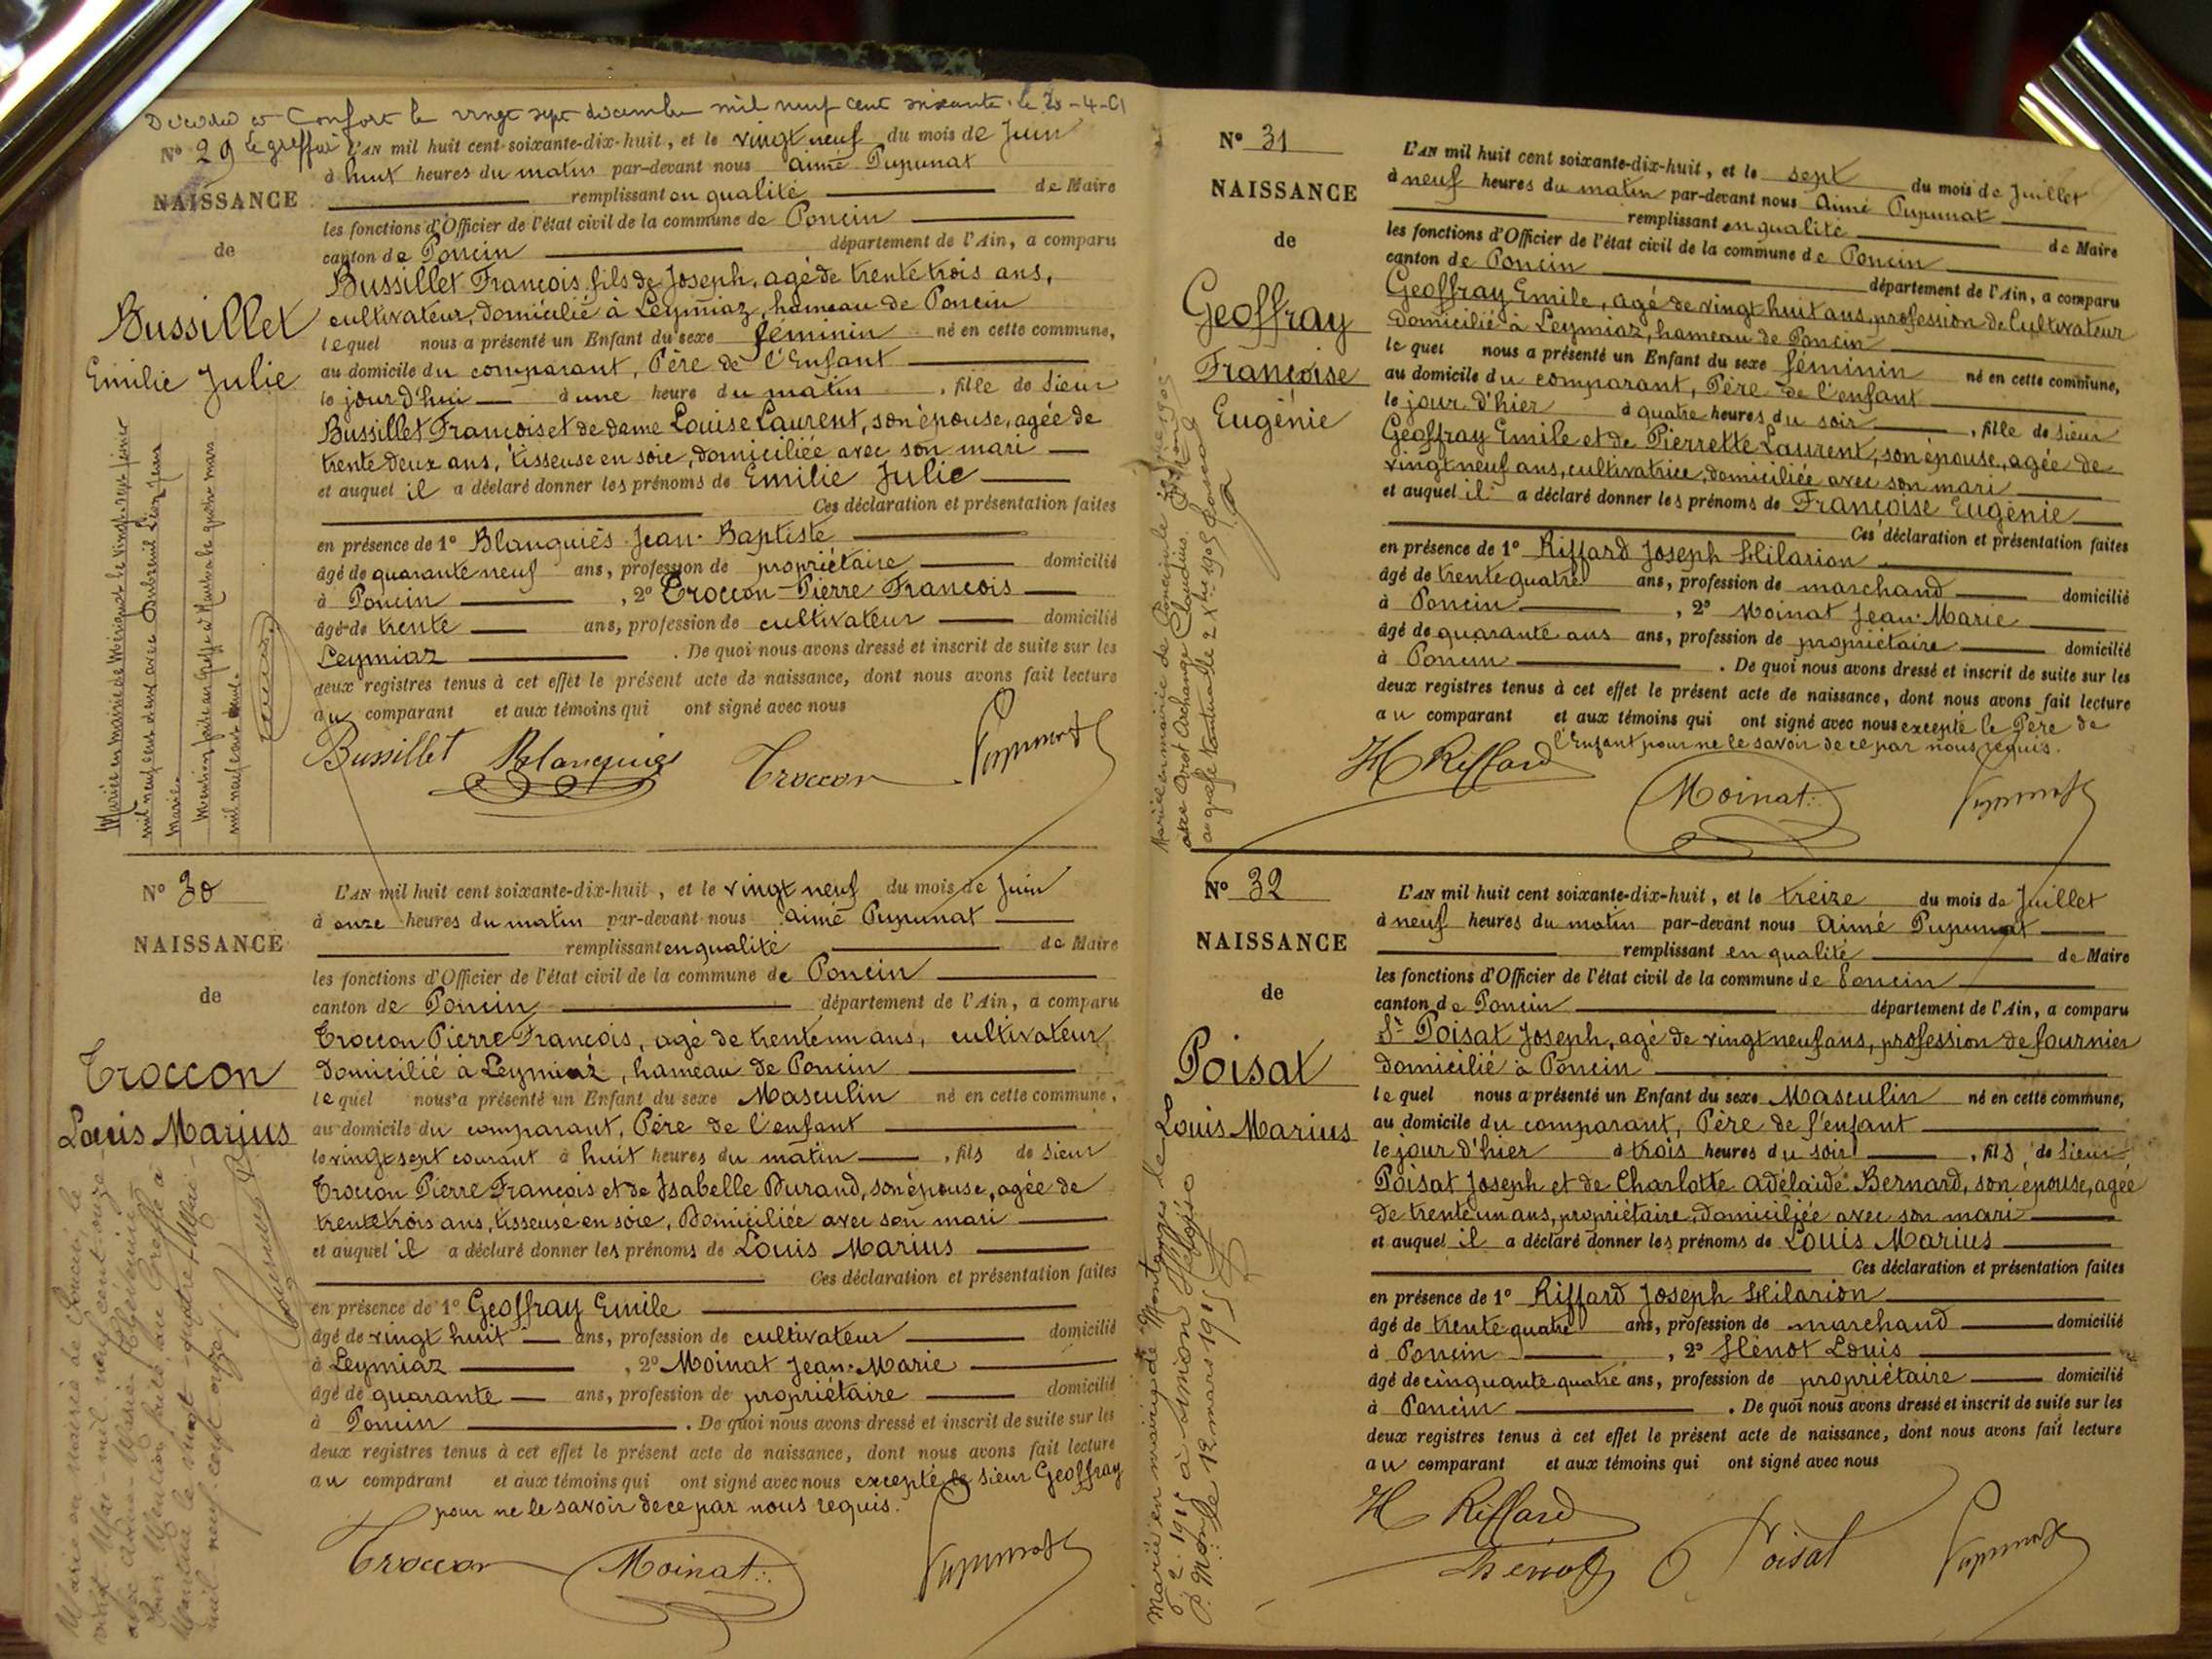 Décédée à Confort le vingt sept décembre mil neuf cent soixante. le 20-4-61
Le greffier
N° 29
NAISSANCE
de
Bussillet
Emilie Julie
Mariée en mairie de Mérignat le vingt sept février
mil neuf cent deux avec Dubreuil Léon Jean
Marie.
Mention faite au Greffe à Nantua le quatre mars
mil neuf cent deux.
L'AN mil huit cent soixante-dix-huit, et le vingt neuf du mois de Juin
à huit heures du matin par-devant nous aimé Pupunat
remplissant en qualité de Maire
les fonctions d'Officier de l'état civil de la commune de Poncin
canton de Poncin département de l'Ain, a comparu
Bussillet François fils de Joseph, agé de trente trois ans,
cultivateur, domicilié à Leymiaz, hameau de Poncin
lequel nous a présenté un Enfant du sexe féminin né en cette commune,
au domicile du comparant, Père de l'Enfant
le jour d'hui à une heure du matin, fille de Sieur
Bussillet François et de dame Louise Laurent, son épouse, agée de
trente deux ans, tisseuse en soie, domiciliée avec son mari
et auquel il a déclaré donner les prénoms de Emilie Julie
Ces déclaration et présentation faites
en présence de 1° Blanquiés Jean-Baptiste
âgé de quarante neuf ans, profession de propriétaire domicilié
à Poncin, 2° Troccon Pierre François
âgé de trente ans, profession de cultivateur domicilié
Leymiaz. De quoi nous avons dressé et inscrit de suite sur les
deux registres tenus à cet effet le présent acte de naissance, dont nous avons fait lecture
au comparant et aux témoins qui ont signé avec nous
Bussillet Blanquiés Troccon Pupunat
N° 30
NAISSANCE
de
Troccon
Louis Marius
Marié en mairie de Poncin, le
vingt Mai mil neuf cent onze
avec
Pour Mention faite au Greffe à
Nantua le vingt-quatre Mai
mil neuf cent onze.
L'AN mil huit cent soixante-dix-huit, et le vingt neuf du mois de Juin
à onze heures du matin par-devant nous aimé Pupunat
remplissant en qualité de Maire
les fonctions d'Officier de l'état civil de la commune de Poncin
canton de Poncin département de l'Ain, a comparu
Troccon Pierre François, agé de trente un ans, cultivateur
domicilié à Leymiaz, hameau de Poncin
lequel nous a présenté un Enfant du sexe Masculin né en cette commune,
au domicile du comparant, Père de l'enfant
le vingt sept courant à huit heures du matin, fils de Sieur
Troccon Pierre François et de Isabelle Durand, son épouse, agée de
trente trois ans, tisseuse en soie, Domiciliée avec son mari
et auquel il a déclaré donner les prénoms de Louis Marius
Ces déclaration et présentation faites
en présence de 1° Geoffray Emile
âgé de vingt huit ans, profession de cultivateur domicilié
à Leymiaz, 2° Moinat Jean-Marie
âgé de quarante ans, profession de propriétaire domicilié
à Poncin. De quoi nous avons dressé et inscrit de suite sur les
deux registres tenus à cet effet le présent acte de naissance, dont nous avons fait lecture
au comparant et aux témoins qui ont signé avec nous excepté le Sieur Geoffray
pour ne le savoir de ce par nous requis.
Troccon Moinat Pupunat
N° 31
NAISSANCE
de
Geoffray
Françoise
Eugénie
Mariée en mairie de Poncin le
avec Archange Claudius.
au greffe Nantua le 2 Xbre 1905
L'AN mil huit cent soixante-dix-huit, et le sept du mois de Juillet
à neuf heures du matin par-devant nous Aimé Pupunat
remplissant en qualité de Maire
les fonctions d'Officier de l'état civil de la commune de Poncin
canton de Poncin département de l'Ain, a comparu
Geoffray Emile, agé de vingt huit ans, profession de Cultivateur
domicilié à Leymiaz, hameau de Poncin
lequel nous a présenté un Enfant du sexe féminin né en cette commune,
au domicile du comparant, Père de l'enfant
le jour d'hier à quatre heures du soir, fille de Sieur
Geoffray Emile et de Pierrette Laurent, son épouse, agée de
vingt neuf ans, cultivatrice, domiciliée avec son mari
et auquel il a déclaré donner les prénoms de Françoise Eugénie
Ces déclaration et présentation faites
en présence de 1° Riffard Joseph Hilarion
âgé de trente quatre ans, profession de marchand domicilié
à Poncin, 2° Moinat Jean-Marie
âgé de quarante ans ans, profession de propriétaire domicilié
à Poncin. De quoi nous avons dressé et inscrit de suite sur les
deux registres tenus à cet effet le présent acte de naissance, dont nous avons fait lecture
au comparant et aux témoins qui ont signé avec nous excepté le Père de
l'Enfant pour ne le savoir de ce par nous requis.
H Riffard Moinat Pupunat
N° 32
NAISSANCE
de
Poisat
Louis Marius
Marié en mairie de Montanges le
6. 2. 1915 à
12 mars 1915
L'AN mil huit cent soixante-dix-huit, et le treize du mois de Juillet
à neuf heures du matin par-devant nous Aimé Pupunat
remplissant en qualité de Maire
les fonctions d'Officier de l'état civil de la commune de Poncin
canton de Poncin département de l'Ain, a comparu
Sr Poisat Joseph, agé de vingt neuf ans, profession de fournier
domicilié à Poncin
lequel nous a présenté un Enfant du sexe Masculin né en cette commune,
au domicile du comparant, Père de l'enfant
le jour d'hier à trois heures du soir, fils de Sieur
Poisat Joseph et de Charlotte Adélaïde Bernard, son épouse, agée
de trente un ans, propriétaire, domiciliée avec son mari
et auquel il a déclaré donner les prénoms de Louis Marius
Ces déclaration et présentation faites
en présence de 1° Riffard Joseph Hilarion
âgé de trente quatre ans, profession de marchand domicilié
à Poncin, 2° Hénot Louis
âgé de cinquante quatre ans, profession de propriétaire domicilié
à Poncin. De quoi nous avons dressé et inscrit de suite sur les
deux registres tenus à cet effet le présent acte de naissance, dont nous avons fait lecture
au comparant et aux témoins qui ont signé avec nous
H Riffard
Hénot Poisat Pupunat